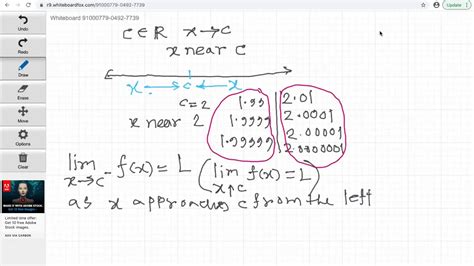 r9.whiteboardfox.com/91000779-0492-7739
Update
Whiteboard 91000779-0492-7739
Undo
Redo
Draw
Erase
Menu
Move
Limited time offer:
Get 10 free Adobe
Stock images.
ADS VIA CARBON
c∈ℝ x→c
x near c
x → c ← x
c=2
x near 2
1.99
1.9999
1.99999
2.01
2.0001
2.00001
2.0000001
lim x→c⁻ f(x) = L (lim x↑c f(x) = L)
as x approaches c from the left